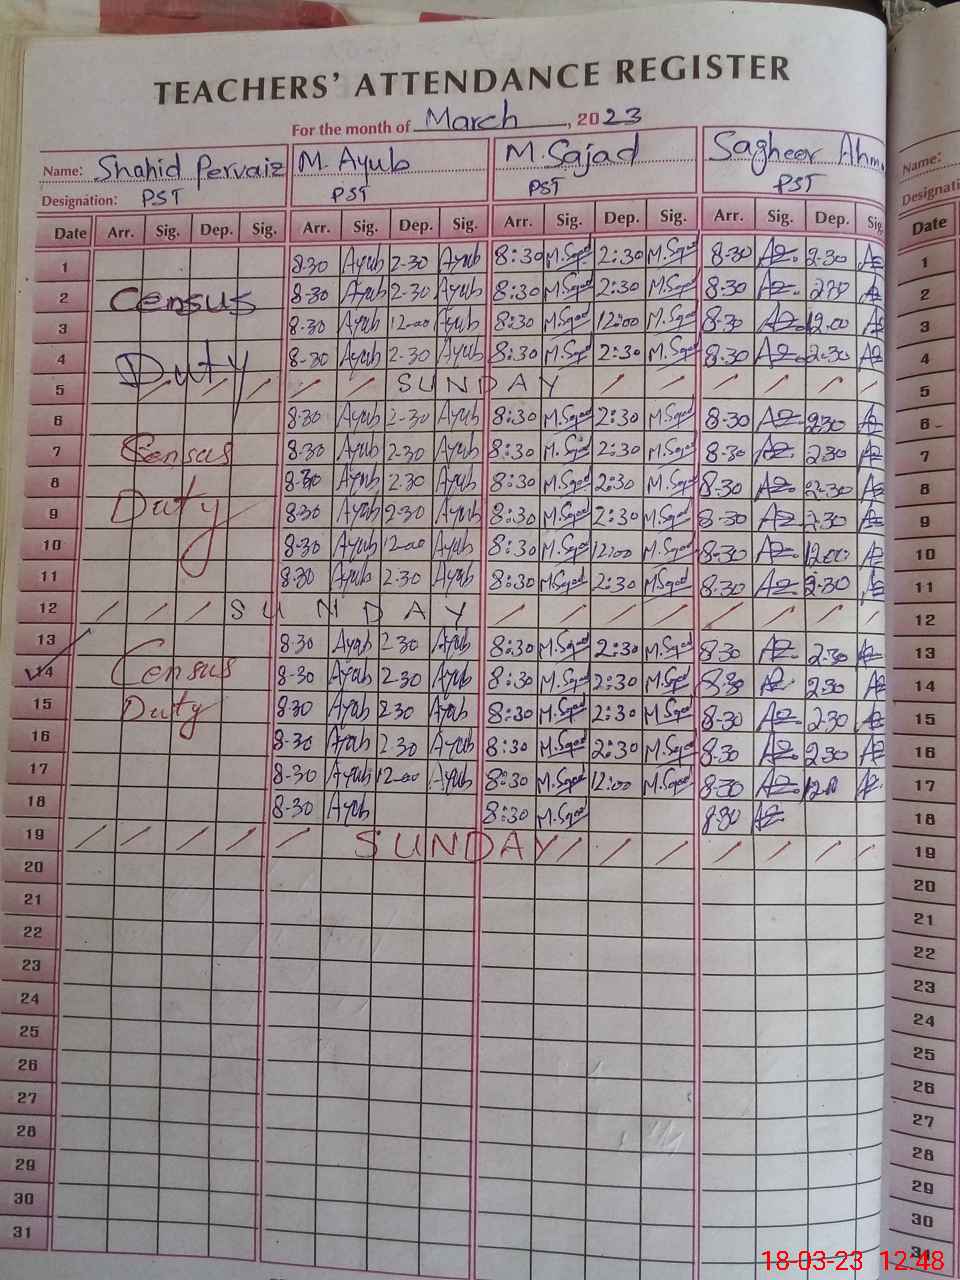 TEACHERS' ATTENDANCE REGISTER
For the month of March, 2023
Name: Shahid Pervaiz M. Ayub M. Sajad Sagheer Ahm Name:
Designation: PST PST PST PST Designati
Date Arr. Sig. Dep. Sig. Arr. Sig. Dep. Sig. Arr. Sig. Dep. Sig. Arr. Sig. Dep. Sig. Date
1 8-30 Ayub 2-30 Ayub 8:30 M.Sajad 2:30 M.Sajad 8-30 2-30 1
2 Census 8-30 Ayub 2-30 Ayub 8:30 M.Sajad 2:30 M.Sajad 8-30 230 2
3 8-30 Ayub 12-00 Ayub 8:30 M.Sajad 12:00 M.Sajad 8-30 12.00 3
4 Duty 8-30 Ayub 2-30 Ayub 8:30 M.Sajad 2:30 M.Sajad 8-30 2-30 4
5 SUNDAY 5
6 8-30 Ayub 2-30 Ayub 8:30 M.Sajad 2:30 M.Sajad 8-30 2-30 6
7 Census 8-30 Ayub 2-30 Ayub 8:30 M.Sajad 2:30 M.Sajad 8-30 2-30 7
8 8-30 Ayub 2-30 Ayub 8:30 M.Sajad 2:30 M.Sajad 8-30 2-30 8
9 Duty 8-30 Ayub 2-30 Ayub 8:30 M.Sajad 2:30 M.Sajad 8-30 2-30 9
10 8-30 Ayub 12-00 Ayub 8:30 M.Sajad 12:00 M.Sajad 8-30 12.00 10
11 8-30 Ayub 2-30 Ayub 8:30 M.Sajad 2:30 M.Sajad 8-30 2-30 11
12 SUNDAY 12
13 8-30 Ayub 2-30 Ayub 8:30 M.Sajad 2:30 M.Sajad 8-30 2-30 13
14 Census 8-30 Ayub 2-30 Ayub 8:30 M.Sajad 2:30 M.Sajad 8-30 2-30 14
15 Duty 8-30 Ayub 2-30 Ayub 8:30 M.Sajad 2:30 M.Sajad 8-30 2-30 15
16 8-30 Ayub 2-30 Ayub 8:30 M.Sajad 2:30 M.Sajad 8-30 2-30 16
17 8-30 Ayub 12-00 Ayub 8:30 M.Sajad 12:00 M.Sajad 8-30 17
18 8-30 Ayub 8:30 M.Sajad 8-30 18
19 SUNDAY 19
20 20
21 21
22 22
23 23
24 24
25 25
26 26
27 27
28 28
29 29
30 30
31
18-03-23 12:48